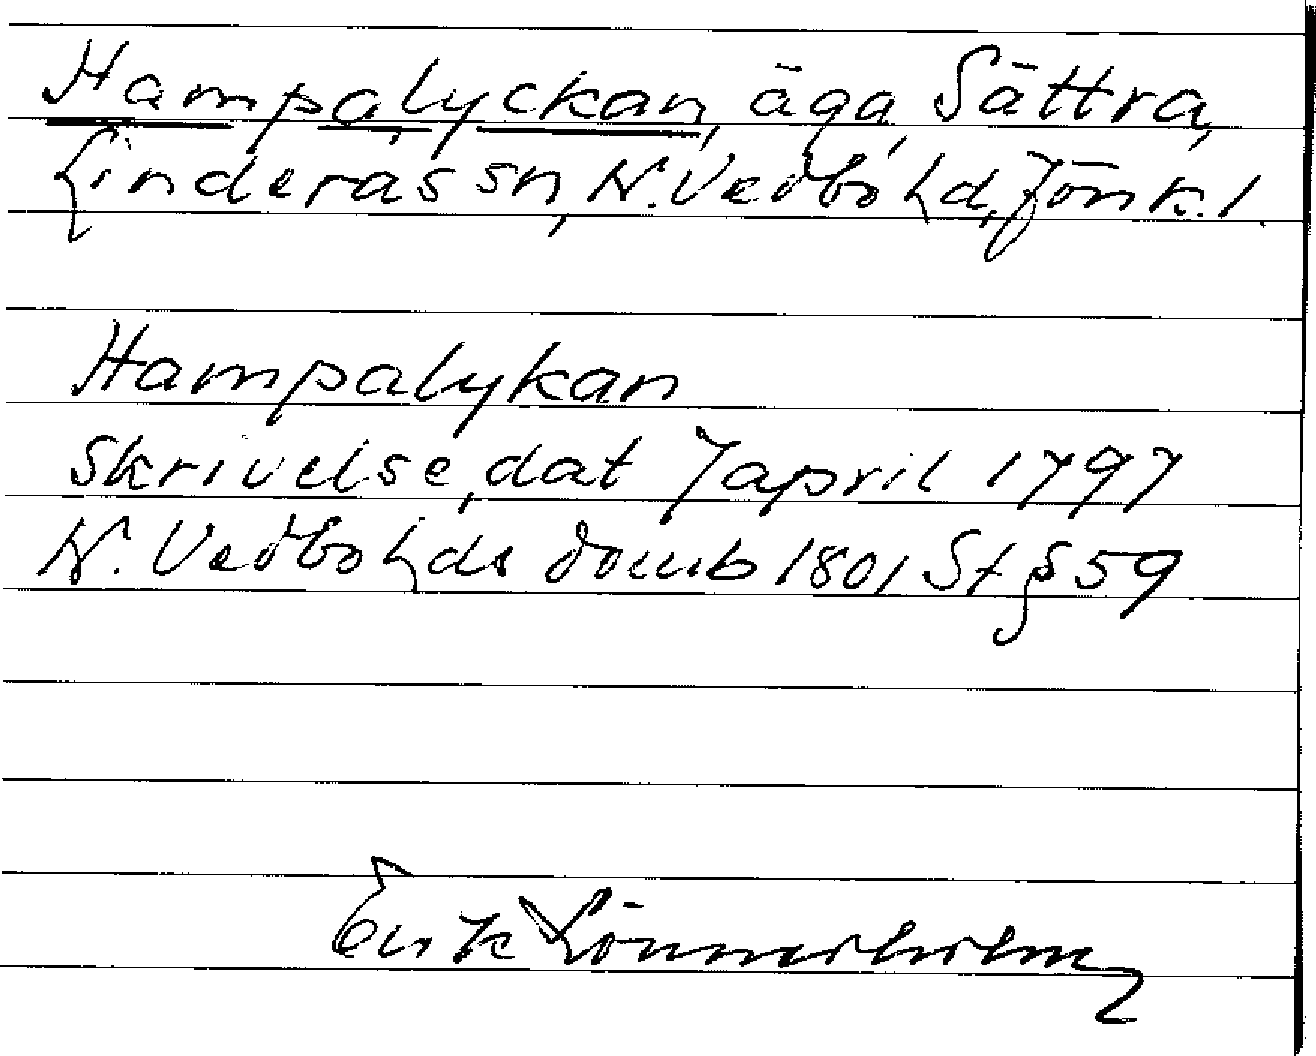 Hampalyckan, äga, Sättra,
Linderås sn, N. Vedbo hd, Jönk. l.
Hampalykan
Skrivelse, dat 7 april 1797
N. Vedbo hds domb 1801 St § 59
Erik Lönnerholm